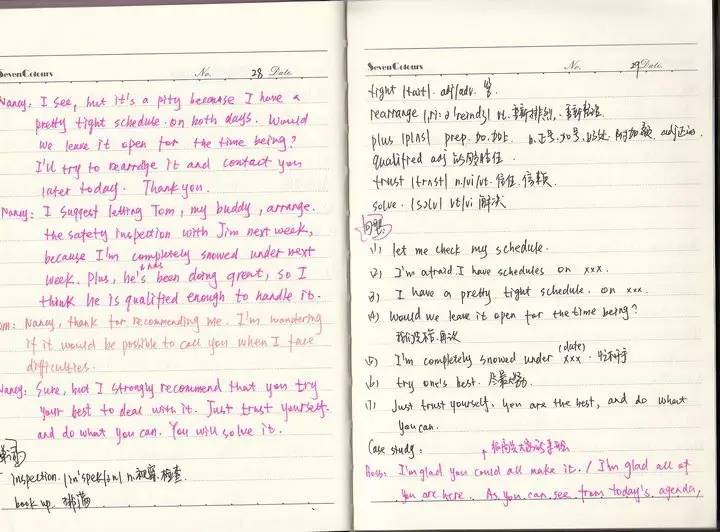 SevenColours No. 28 Date.
Nancy: I see, but it's a pity because I have a
pretty tight schedule on both days. Would
we leave it open for the time being?
I'll try to rearrange it and contact you
later today. Thank you.
Nancy: I suggest letting Tom, my buddy, arrange.
the safety inspection with Jim next week,
because I'm completely snowed under next
week. Plus, he's been doing great, so I
think he is qualified enough to handle it.
om: Nancy, thank for recommending me. I'm wandering
if it would be possible to call you when I face
difficulties.
Nancy: Sure, but I strongly recommend that you try
your best to deal with it. Just trust yourself.
and do what you can. You will solve it.
单词
inspection. /ɪn'spekʃən/ n. 视察. 检查
book up
SevenColours No. 29 Date.
tight /taɪt/. adj/adv. 紧
rearrange /ˌri:ə'reɪndʒ/ vt. 重新排列. 重新
plus /plʌs/ prep. 加. 加上 n. 正号. 加号. 附加额. adj
qualified adj
trust /trʌst/ n./vi/vt. 信任. 信赖
solve. /sɔlv/ vt/vi 解决
(1) let me check my schedule.
(2) I'm afraid I have schedules on xxx.
(3) I have a pretty tight schedule. on xxx.
(4) Would we leave it open for the time being?
(5) I'm completely snowed under xxx.
(date)
(6) try one's best. 尽最大努力.
(7) Just trust yourself. you are the best, and do what
you can.
Case study:
Boss: I'm glad you could all make it. / I'm glad all of
you are here. As you can see from today's agenda,